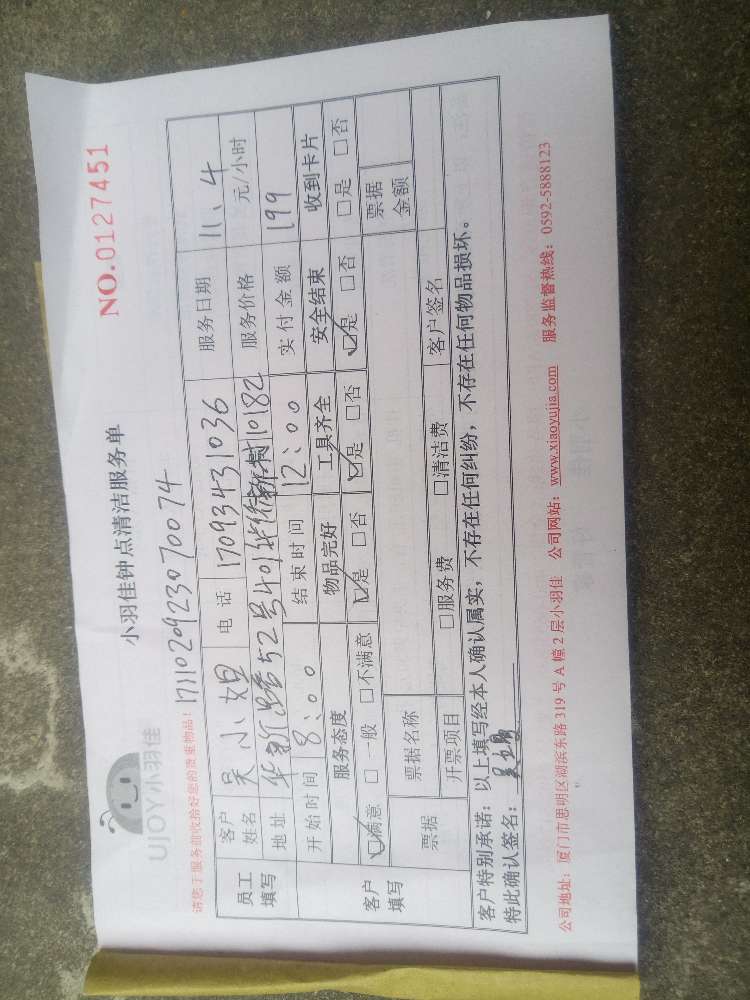 UJOY小羽佳
小羽佳钟点清洁服务单
NO.0127451
请您于服务前收拾好您的贵重物品!
17110209230 70074
员工填写 客户姓名 吴小妲 电话 17093431036 服务日期 11、4
地址 52号401 10182 服务价格 元/小时
开始时间 8:00 结束时间 12:00 实付金额 199
客户填写 服务态度 物品完好 工具齐全 安全结束 收到卡片
☑满意 □一般 □不满意 ☑是 □否 ☑是 □否 ☑是 □否 □是 □否
票据 票据名称 票据金额
开票项目 □服务费 □清洁费 客户签名
客户特别承诺:以上填写经本人确认属实,不存在任何纠纷,不存在任何物品损坏。
特此确认签名:
公司地址:厦门市思明区湖滨东路319号A幢2层小羽佳 公司网站:www.xiaoyujia.com 服务监督热线:0592-5888123